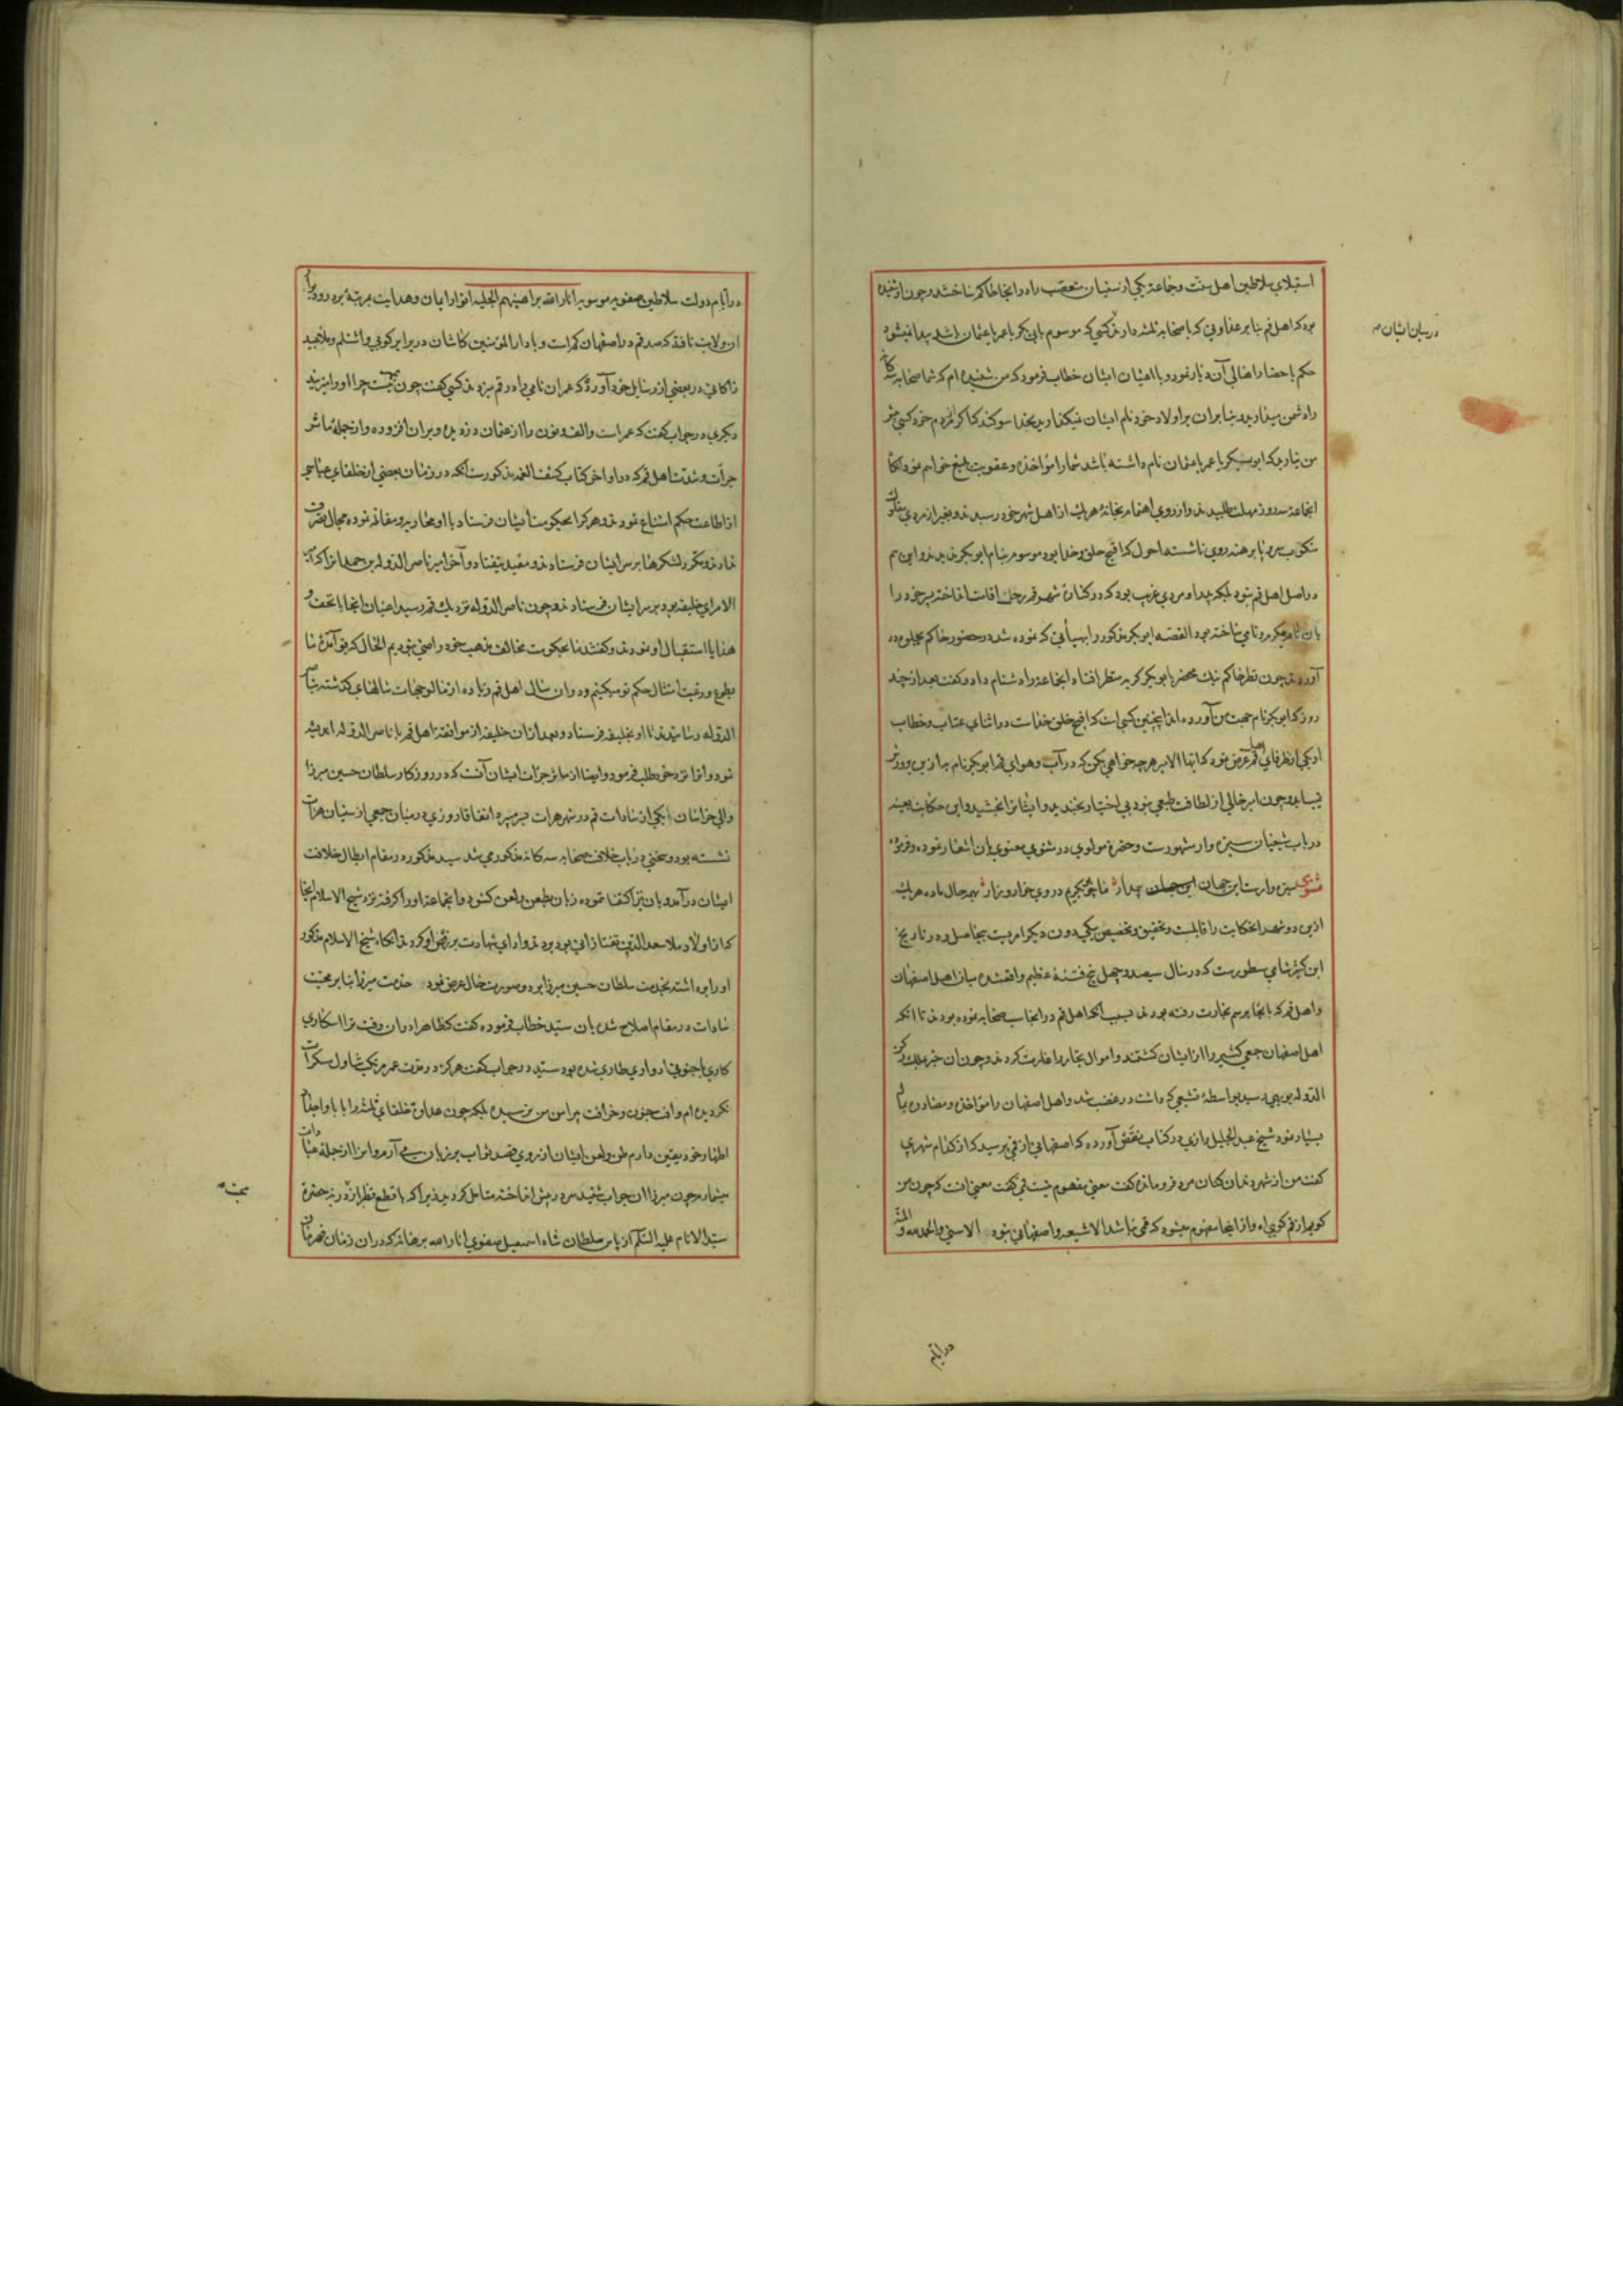 استیلای سلاطین اهل سنت و جماعت یکی از سنیان متعصب را در انجا حاکم ساختند و چون شنیده
بود که اهل قم بنا بر عداوتی که با صحابه ثلثه دارند کسی که موسوم بابی بکر یا عمر یا عثمان باشد پیدا نمیشود
در میان ایشان
حکم باحضار اهالی آن دیار نمود و با اعیان ایشان خطاب فرمود که من شنیده ام که شما صحابه سه کانه
را دشمن میدارید و بنا بر ان بر اولاد خود نام ایشان نمیکذارید بخدا سوکند که اکر از مردم خود کسی پیش
من نیارید که ابو بکر یا عمر یا عثمان نام داشته باشد شما را مواخذه و عقوبت بلیغ خواهم نمود انکاه
انجماعت سه روز مهلت طلبیدند و از روی اهتمام بخانه هر یک از اهل شهر خود رسیدند و بغیر از مردی مفلوک
منکوب سر و پا برهنه روی ناشسته احول که اقبح خلق خدا بود موسوم بنام ابو بکر ندیدند و این هم
در اصل اهل قم نبود بلکه پدر او مردی غریب بود که در کناره شهر قم رحل اقامت انداخته پسر خود را
بان نام نامی ساخته بود القصه ابو بکر مذکور را بهیأتی که نموده شد در حضور حاکم جلوه در
آوردند چون نظر حاکم نیک محضر بابو بکر کریه منظر افتاد انجماعت را دشنام داد و کفت بعد از چند
روز که ابو بکر نام جهت من آورده اید اینچنین کسی است که اقبح خلق خداست در اثنای عتاب و خطاب
او یکی از ظرفای قم عرض نمود که ایها الامیر هر چه خواهی بکن که در آب و هوای قم ابو بکر نام به ازین پرورش
نمییابد چون امیر خالی از لطافت طبعی نبود بی اختیار بخندید و ایشانرا بخشید و این حکایت بعینه
در باب شیعیان سبزوار مشهورست و حضرت مولوی در مثنوی معنوی بان اشعار نموده و فرموده
مثنوی سبزوارست این جهان بی مدار ما چو بکریم در وی خوار و زار بهر حال ماده هر یک
ازین دو شهر انحکایت را قابلست و تحقیق و تخصیص بیکی دون دیکر امریست بیحاصل و در تاریخ
ابن کثیر شامی مسطورست که در سال سیصد و چهل و پنج فتنه عظیم واقع شد میان اهل اصفهان
و اهل قم که بانجا برسم تجارت رفته بودند بسبب انکه اهل قم در انجا سب صحابه نموده بودند تا انکه
اهل اصفهان جمعی کثیر را از ایشان کشتند و اموال تجار را غارت کردند و چون ان خبر بملک رکن
الدوله بویهی رسید بواسطه تشیعی که داشت در غضب شد و اهل اصفهان را مواخذه و مصادره بمال
بسیار نمود شیخ عبد الجلیل رازی در کتاب نقض آورده که اصفهانی از قمی پرسید که از کدام شهری
کفت من از شهر دندان کنان مرد فرو ماند کفت معنی مفهوم نیست قمی کفت معنی انست که چون من
کویم از قم کویی اه و از اینجا مفهوم میشود که قمی نباشد الا شیعه و اصفهانی نبود الا سنی و الحمد لله و المنة
در ایام
در ایام دولت سلاطین صفویه موسویه انار الله براهینهم الجلیه انوار ایمان و هدایت بمرتبه بر در و دیوار
ان ولایت تافته که صد قم در اصفهان کم است و با دار المؤمنین کاشان در برابر کویی و اشتلم و ملا عبید
زاکانی در بعضی از رسایل خود آورده که عمران نامی را در قم میزدند کسی کفت چون عمر نیست چرا او را میزنید
دیکری در جواب کفت که عمر است و الف و نون را از عثمان دزدیده و بران افزوده و از جمله مآثر
جرأت و شدت اهل قم که در اواخر کتاب کشف الغمه مذکورست انکه در زمان بعضی از خلفای عباسی
از اطاعت حکم امتناع نمودند و هر کرا بحکومت ایشان فرستاد با او محاربه و مقاتله نموده مجال تصرف
ندادند و مکرر لشکرها بر سر ایشان فرستادند و مفید نیفتاد و آخر امیر ناصر الدوله بن حمدانرا که امیر
الامرای خلیفه بود بر سر ایشان فرستادند و چون ناصر الدوله نزدیک قم رسید اعیان انجا با تحف و
هدایا استقبال او نمودند و کفتند ما بحکومت مخالف مذهب خود راضی نبودیم الحال که تو آمدی ما
بطوع و رغبت امتثال حکم تو میکنیم و در ان سال اهل قم زیاده از مال و جهات سالهای کذشته بناصر
الدوله رسانیدند تا او بخلیفه فرستاد و بعد از ان خلیفه از موافقت اهل قم با ناصر الدوله اندیشید
نمود و او را نزد خود طلب فرمود و ایضا از مآثر جرأت ایشان آنست که در روزکار سلطان حسین میرزا
والی خراسان یکی از سادات قم در شهر هرات بسر میبرد اتفاقا روزی در میان جمعی از سنیان هرات
نشسته بود و سخنی در باب خلافت صحابه سه کانه مذکور می شد سید مذکور در مقام ابطال خلافت
ایشان در آمد و بان نیز اکتفا ننموده زبان بطعن و لعن کشود و انجماعت او را کرفته نزد شیخ الاسلام انجا
که از اولاد ملا سعد الدین تفتازانی بود بردند و ادای شهادت بر رفض او کردند انکاه شیخ الاسلام مذکور
او را برداشته بخدمت سلطان حسین میرزا برد و صورت حال عرض نمود حضرت میرزا بنا بر محبت
سادات در مقام اصلاح شده بان سید خطاب فرموده کفت که ظاهرا در ان وقت ترا اسکاری
کاری یا جنونی ادواری طاری شده بود سید در جواب کفت هرکز در مدت عمر مرتکب تناول مسکرات
نکردیده ام و افت جنون و خرافت پیرامن من نرسیده بلکه چون عداوت خلفای ثلثه را با آبا و اجداد
اطهار خود بیقین دارم طعن و لعن ایشان از روی قصد ثواب بر زبان می آرم و انرا از جمله عبادات
میشمارم چون میرزا ان جواب شنید سر در پیش انداخته متامل کردید زیرا که با قطع نظر از محبت ذریه حضرت
سید الانام علیه السلام از پاس سلطان شاه اسمعیل صفوی انار الله برهانه که در ان زمان قهرمان